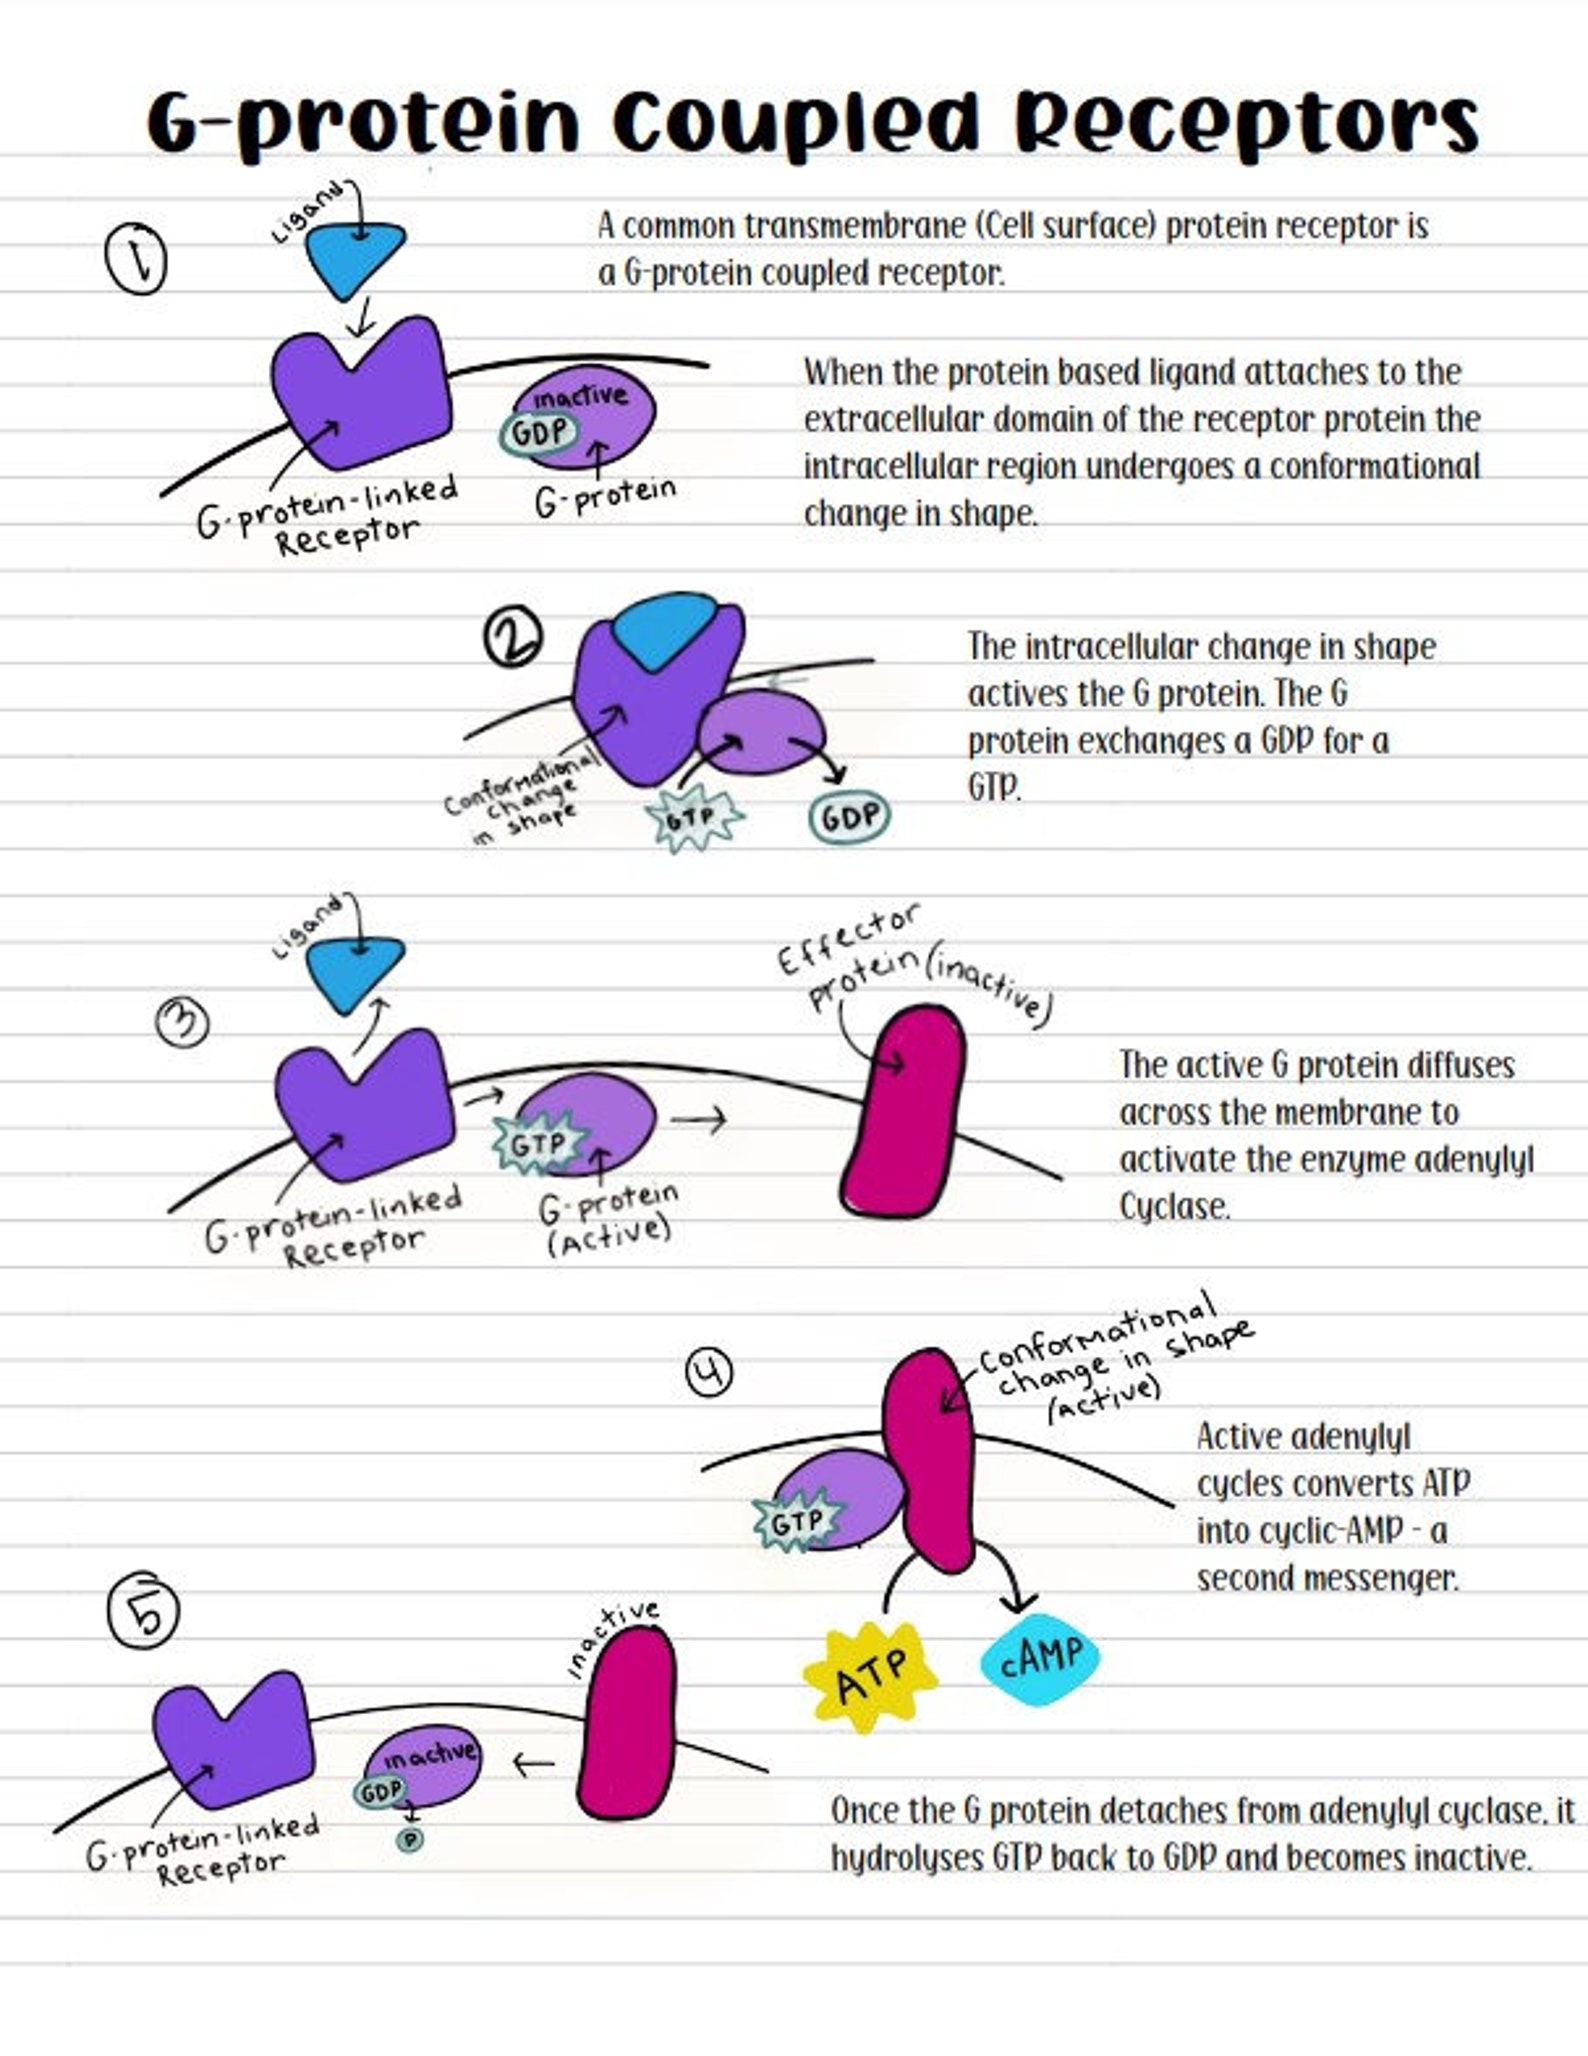 G-protein Coupled Receptors
1
Ligand
A common transmembrane (Cell surface) protein receptor is
a G-protein coupled receptor.
inactive
GDP
G-protein-linked
Receptor
G-protein
When the protein based ligand attaches to the
extracellular domain of the receptor protein the
intracellular region undergoes a conformational
change in shape.
2
Conformational
change
in shape
GTP
GDP
The intracellular change in shape
actives the G protein. The G
protein exchanges a GDP for a
GTP.
3
Ligand
Effector
protein (inactive)
GTP
G-protein-linked
Receptor
G-protein
(Active)
The active G protein diffuses
across the membrane to
activate the enzyme adenylyl
Cyclase.
4
Conformational
change in shape
(active)
GTP
ATP
cAMP
Active adenylyl
cycles converts ATP
into cyclic-AMP - a
second messenger.
5
inactive
inactive
GDP
P
G-protein-linked
Receptor
Once the G protein detaches from adenylyl cyclase, it
hydrolyses GTP back to GDP and becomes inactive.